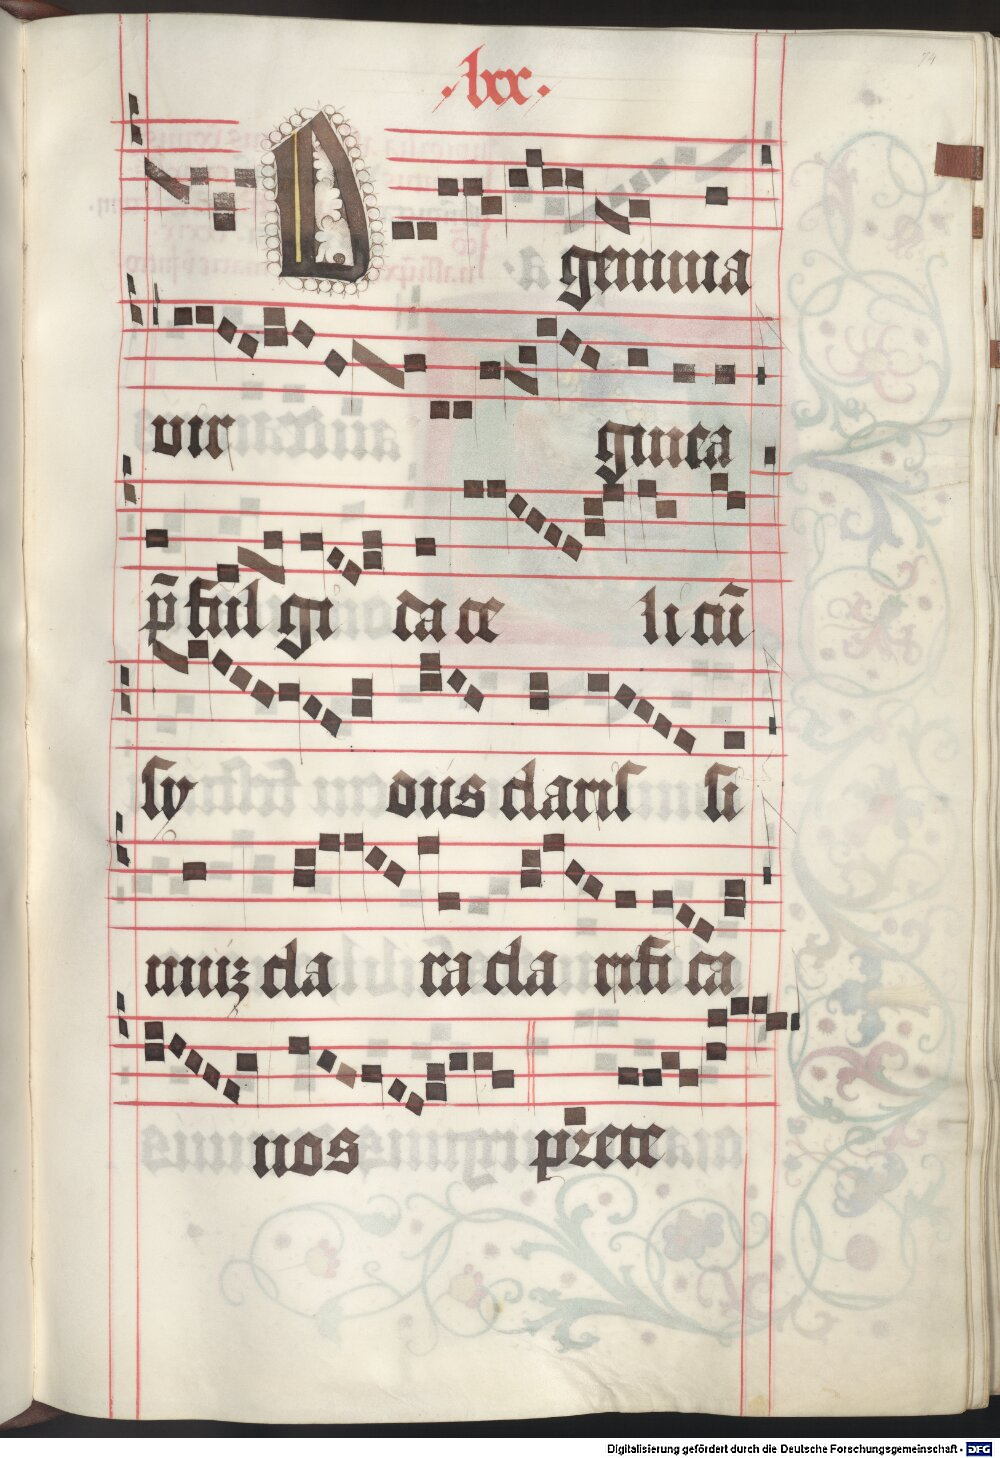 ·lxx·
74
O gemma
vir ginea
p̄ ful gi da ce li cū
sy dus claris si
muz da ra cla rifi ca
nos p̄rece
Digitalisierung gefördert durch die Deutsche Forschungsgemeinschaft - DFG